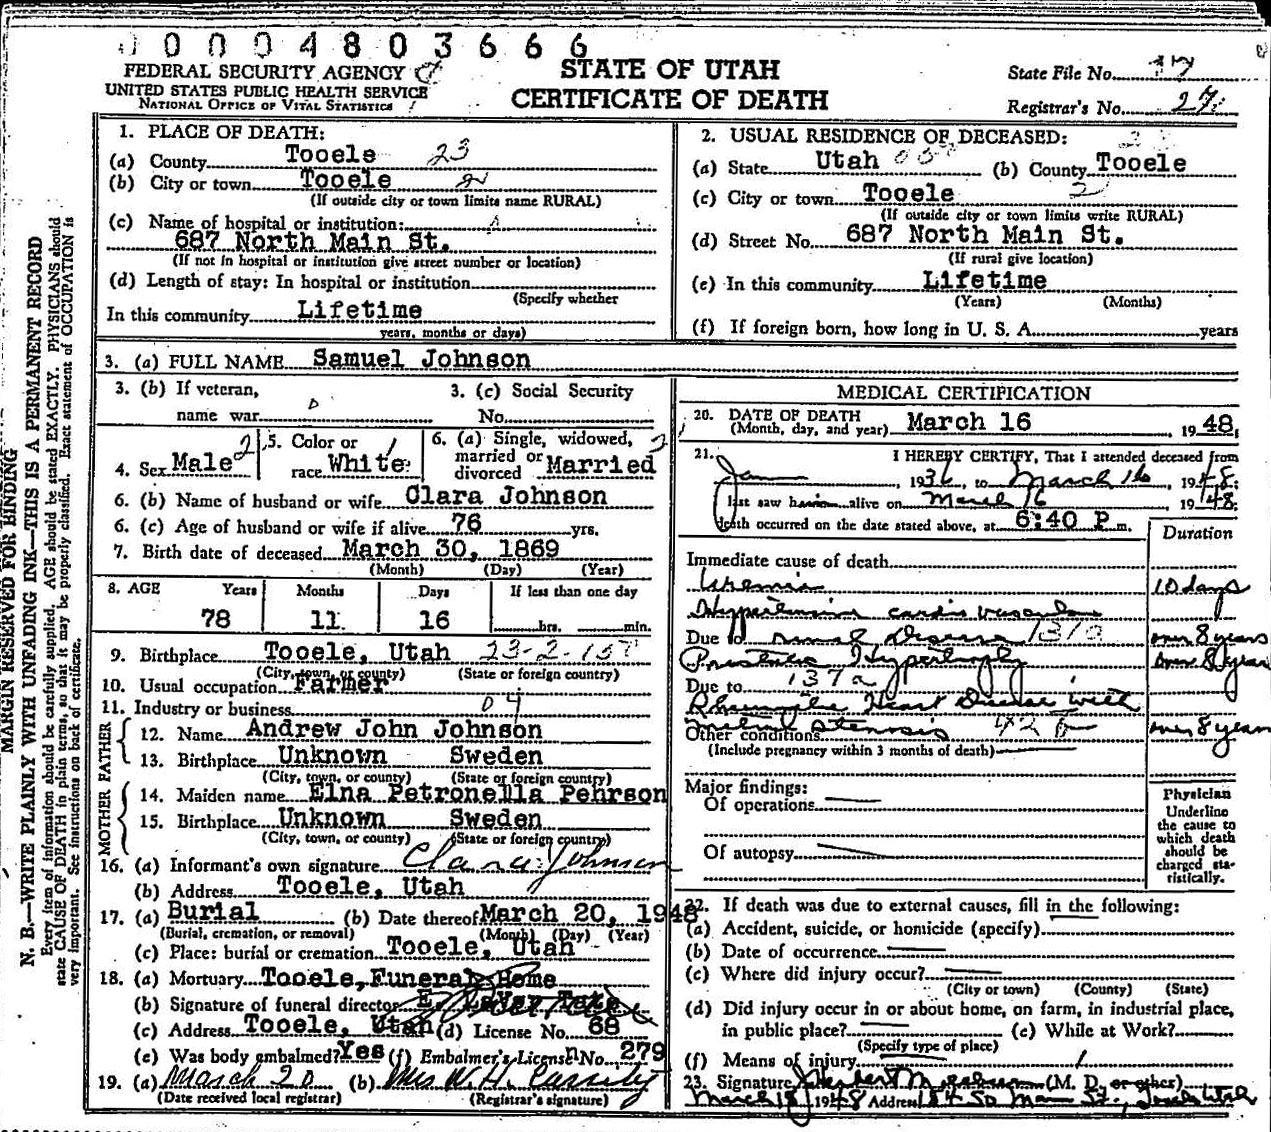 00004803666
FEDERAL SECURITY AGENCY
UNITED STATES PUBLIC HEALTH SERVICE
NATIONAL OFFICE OF VITAL STATISTICS
STATE OF UTAH
CERTIFICATE OF DEATH
State File No. 17
Registrar's No. 27
MARGIN RESERVED FOR BINDING
N. B.—WRITE PLAINLY WITH UNFADING INK—THIS IS A PERMANENT RECORD
Every item of information should be carefully supplied. AGE should be stated EXACTLY. PHYSICIANS should
state CAUSE OF DEATH in plain terms, so that it may be properly classified. Exact statement of OCCUPATION is
very important. See instructions on back of certificate.
1. PLACE OF DEATH:
(a) County Tooele 23
(b) City or town Tooele
(If outside city or town limits name RURAL)
(c) Name of hospital or institution:
687 North Main St.
(If not in hospital or institution give street number or location)
(d) Length of stay: In hospital or institution
(Specify whether
In this community Lifetime
years, months or days)
2. USUAL RESIDENCE OF DECEASED:
(a) State Utah (b) County Tooele
(c) City or town Tooele 2
(If outside city or town limits write RURAL)
(d) Street No. 687 North Main St.
(If rural give location)
(e) In this community Lifetime
(Years) (Months)
(f) If foreign born, how long in U. S. A. years
3. (a) FULL NAME Samuel Johnson
3. (b) If veteran, 3. (c) Social Security
name war No.
4. Sex Male 2 5. Color or race White 1 6. (a) Single, widowed, married or divorced Married 2
6. (b) Name of husband or wife Clara Johnson
6. (c) Age of husband or wife if alive 76 yrs.
7. Birth date of deceased March 30, 1869
(Month) (Day) (Year)
8. AGE Years Months Days If less than one day
78 11 16 hrs. min.
9. Birthplace Tooele, Utah 23-2-
(City, town, or county) (State or foreign country)
10. Usual occupation Farmer
11. Industry or business 04
FATHER
12. Name Andrew John Johnson
13. Birthplace Unknown Sweden
(City, town, or county) (State or foreign country)
MOTHER
14. Maiden name Elna Petronella Pehrson
15. Birthplace Unknown Sweden
(City, town, or county) (State or foreign country)
16. (a) Informant's own signature Clara Johnson
(b) Address Tooele, Utah
17. (a) Burial (b) Date thereof March 20, 1948
(Burial, cremation, or removal) (Month) (Day) (Year)
(c) Place: burial or cremation Tooele, Utah
18. (a) Mortuary Tooele, Funeral Home
(b) Signature of funeral director E. LaVar Tate
(c) Address Tooele, Utah (d) License No. 68
(e) Was body embalmed? Yes (f) Embalmer's License No. 279
19. (a) March 20 (b) Mrs W. H. Cassity
(Date received local registrar) (Registrar's signature)
MEDICAL CERTIFICATION
20. DATE OF DEATH March 16 1948
(Month, day, and year)
21. I HEREBY CERTIFY, That I attended deceased from
Jan 1936, to March 16, 1948;
I last saw him alive on March 16 1948;
death occurred on the date stated above, at 6:40 P m.
Duration
Immediate cause of death
Uremia 10 days
Hypertensive cardio vascular
Due to renal Disease 1310 over 8 years
Prostatic Hypertrophy over 8 years
Due to 137a
Rheumatic Heart Disease with
Mitral stenosis over 8 years
Other conditions
(Include pregnancy within 3 months of death)
Major findings:
Of operations
Of autopsy
Physician
Underline
the cause to
which death
should be
charged sta-
tistically.
22. If death was due to external causes, fill in the following:
(a) Accident, suicide, or homicide (specify)
(b) Date of occurrence
(c) Where did injury occur?
(City or town) (County) (State)
(d) Did injury occur in or about home, on farm, in industrial place,
in public place? (e) While at Work?
(Specify type of place)
(f) Means of injury
23. Signature (M. D. or other)
March 18, 1948 Address 184 So Main St., Tooele Utah